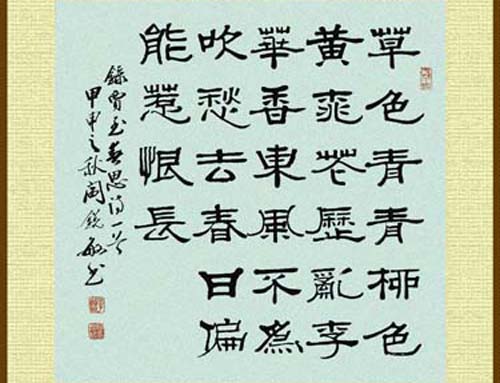 草色青青柳色
黃桃花歷亂李
華香東風不為
吹愁去春日偏
能惹恨長
錄賈至春思诗一首
甲申之秋 敏书